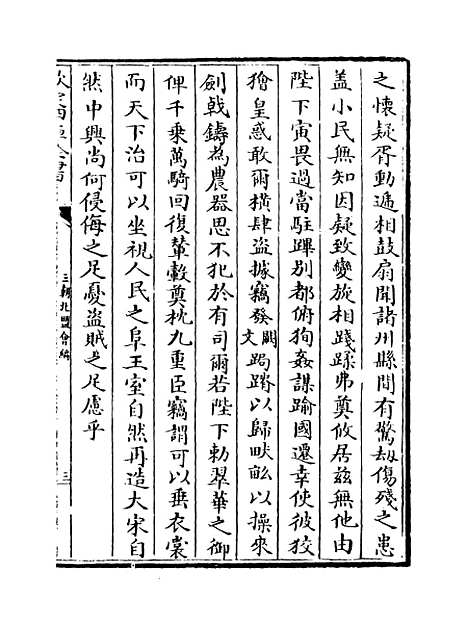 之懷疑胥動遞相鼓扇聞諸州縣間有驚刼傷殘之患
盖小民無知因疑致變旋相踐蹂弗奠攸居兹無他由
陛下寅畏過當駐蹕别都俯狥姦謀踰國遷幸使彼狡
獪皇惑敢爾横肆盜據竊發闕文跼蹐以歸畎畝以操耒
劍戟鑄為農器思不犯於有司爾若陛下勅翠華之御
俾千乘萬騎回復輦轂奠枕九重臣竊謂可以垂衣裳
而天下治可以坐視人民之阜王室自然再造大宋自
然中興尚何侵侮之足憂盜賊之足慮乎
欽定四庫全書
三朝北盟會編
三